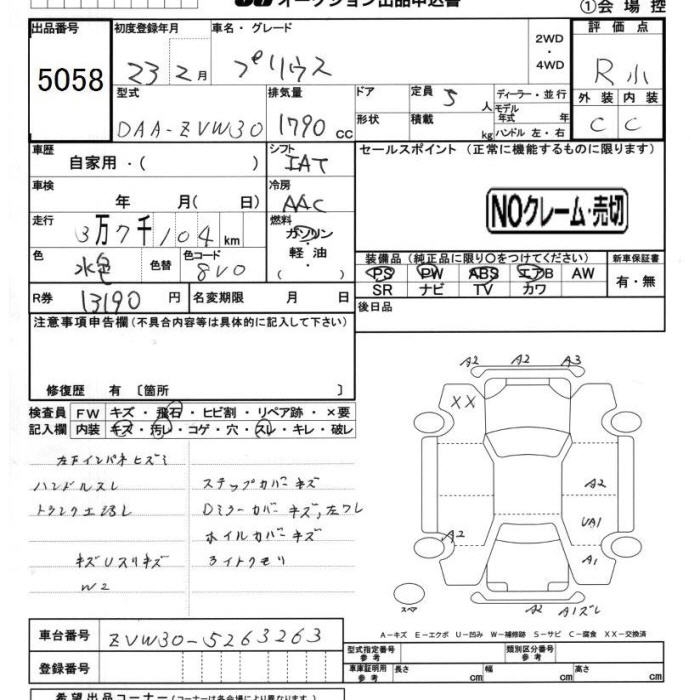 オークション出品申込書
①会場控
出品番号 初度登録年月 車名・グレード 評価点
5058
23 2月 プリウス 2WD・4WD R小
型式 排気量 ドア 定員 5 人 ディーラー・並行 外装 内装
モデル年式 年
DAA-ZVW30 1790 cc 形状 積載 kg ハンドル 左・右 C C
車歴 シフト セールスポイント (正常に機能するものに限ります)
自家用・( ) IAT
車検 冷房
年 月( 日) AAC NOクレーム・売切
走行 燃料
3万7千104km ガソリン・軽油・( )
色 色替 色コード 装備品 (純正品に限り○をつけてください) 新車保証書
水色 8V0 PS PW ABS エアB AW 有・無
SR ナビ TV カワ
R券 13190 円 名変期限 月 日 後日品
注意事項申告欄 (不具合内容等は具体的に記入して下さい)
修復歴 有 〔箇所 〕
A2 A2 A3
XX
検査員 FW キズ・飛石・ヒビ割・リペア跡・×要
記入欄 内装 キズ・汚レ・コゲ・穴・スレ・キレ・破レ
左下インパネヒズミ
ハンドルスレ ステップカバーキズ
Dミラーカバーキズ,左ワレ
ホイルカバーキズ
キズUスリキズ
W2
A2
UA1
A2 A1
A2 A1ズレ
A-キズ E-エクボ U-凹み W-補修跡 S-サビ C-腐食 XX-交換済
車台番号 ZVW30-5263263
型式指定番号 参考 類別区分番号 参考
登録番号
車庫証明用 参考 長さ cm 幅 cm 高さ cm
希望出品コーナー (コーナー名は各会場により異なります)